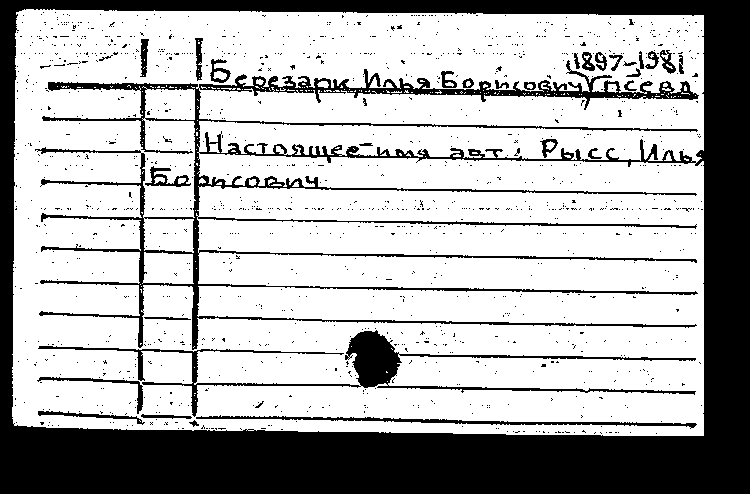 (1897-1981
Березарк, Илья Борисович) псевд
Настоящее имя авт.: Рысс, Илья
Борисович